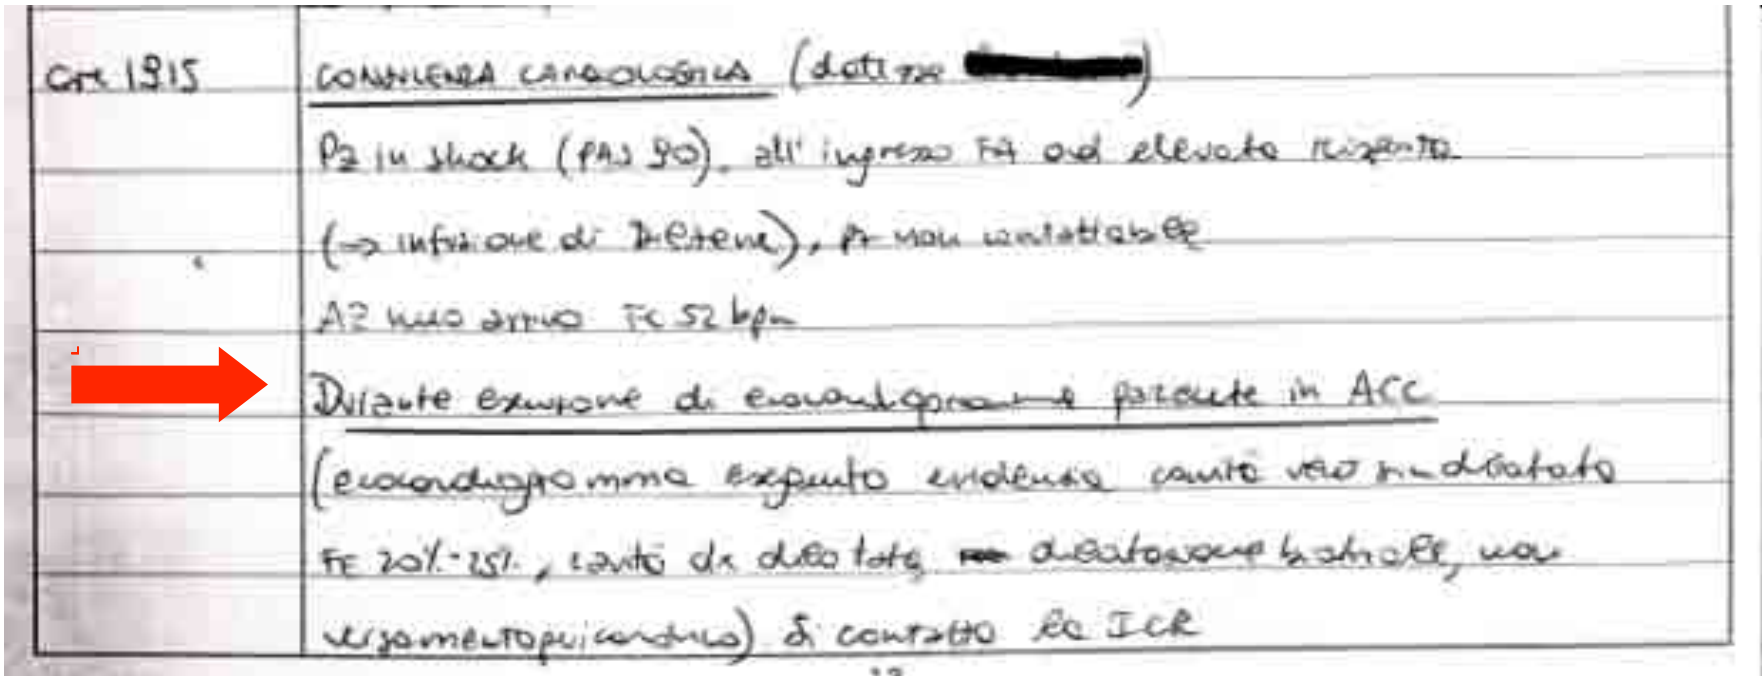 ore 19.15
CONSULENZA CARDIOLOGICA (dott.ssa
Pz in shock (PAS 90), all'ingresso FA ad elevata risposta
(→ infusione di Diltiazem), pz non contattabile
Al mio arrivo FC 52 bpm
Durante esecuzione di ecocardiogramma paziente in ACC
(ecocardiogramma eseguito evidenzia cavità ven sin dilatata
FE 20%-25%, cavità dx dilatata, dilatazione biatriale, non
versamento pericardico) Si contatta la ICR